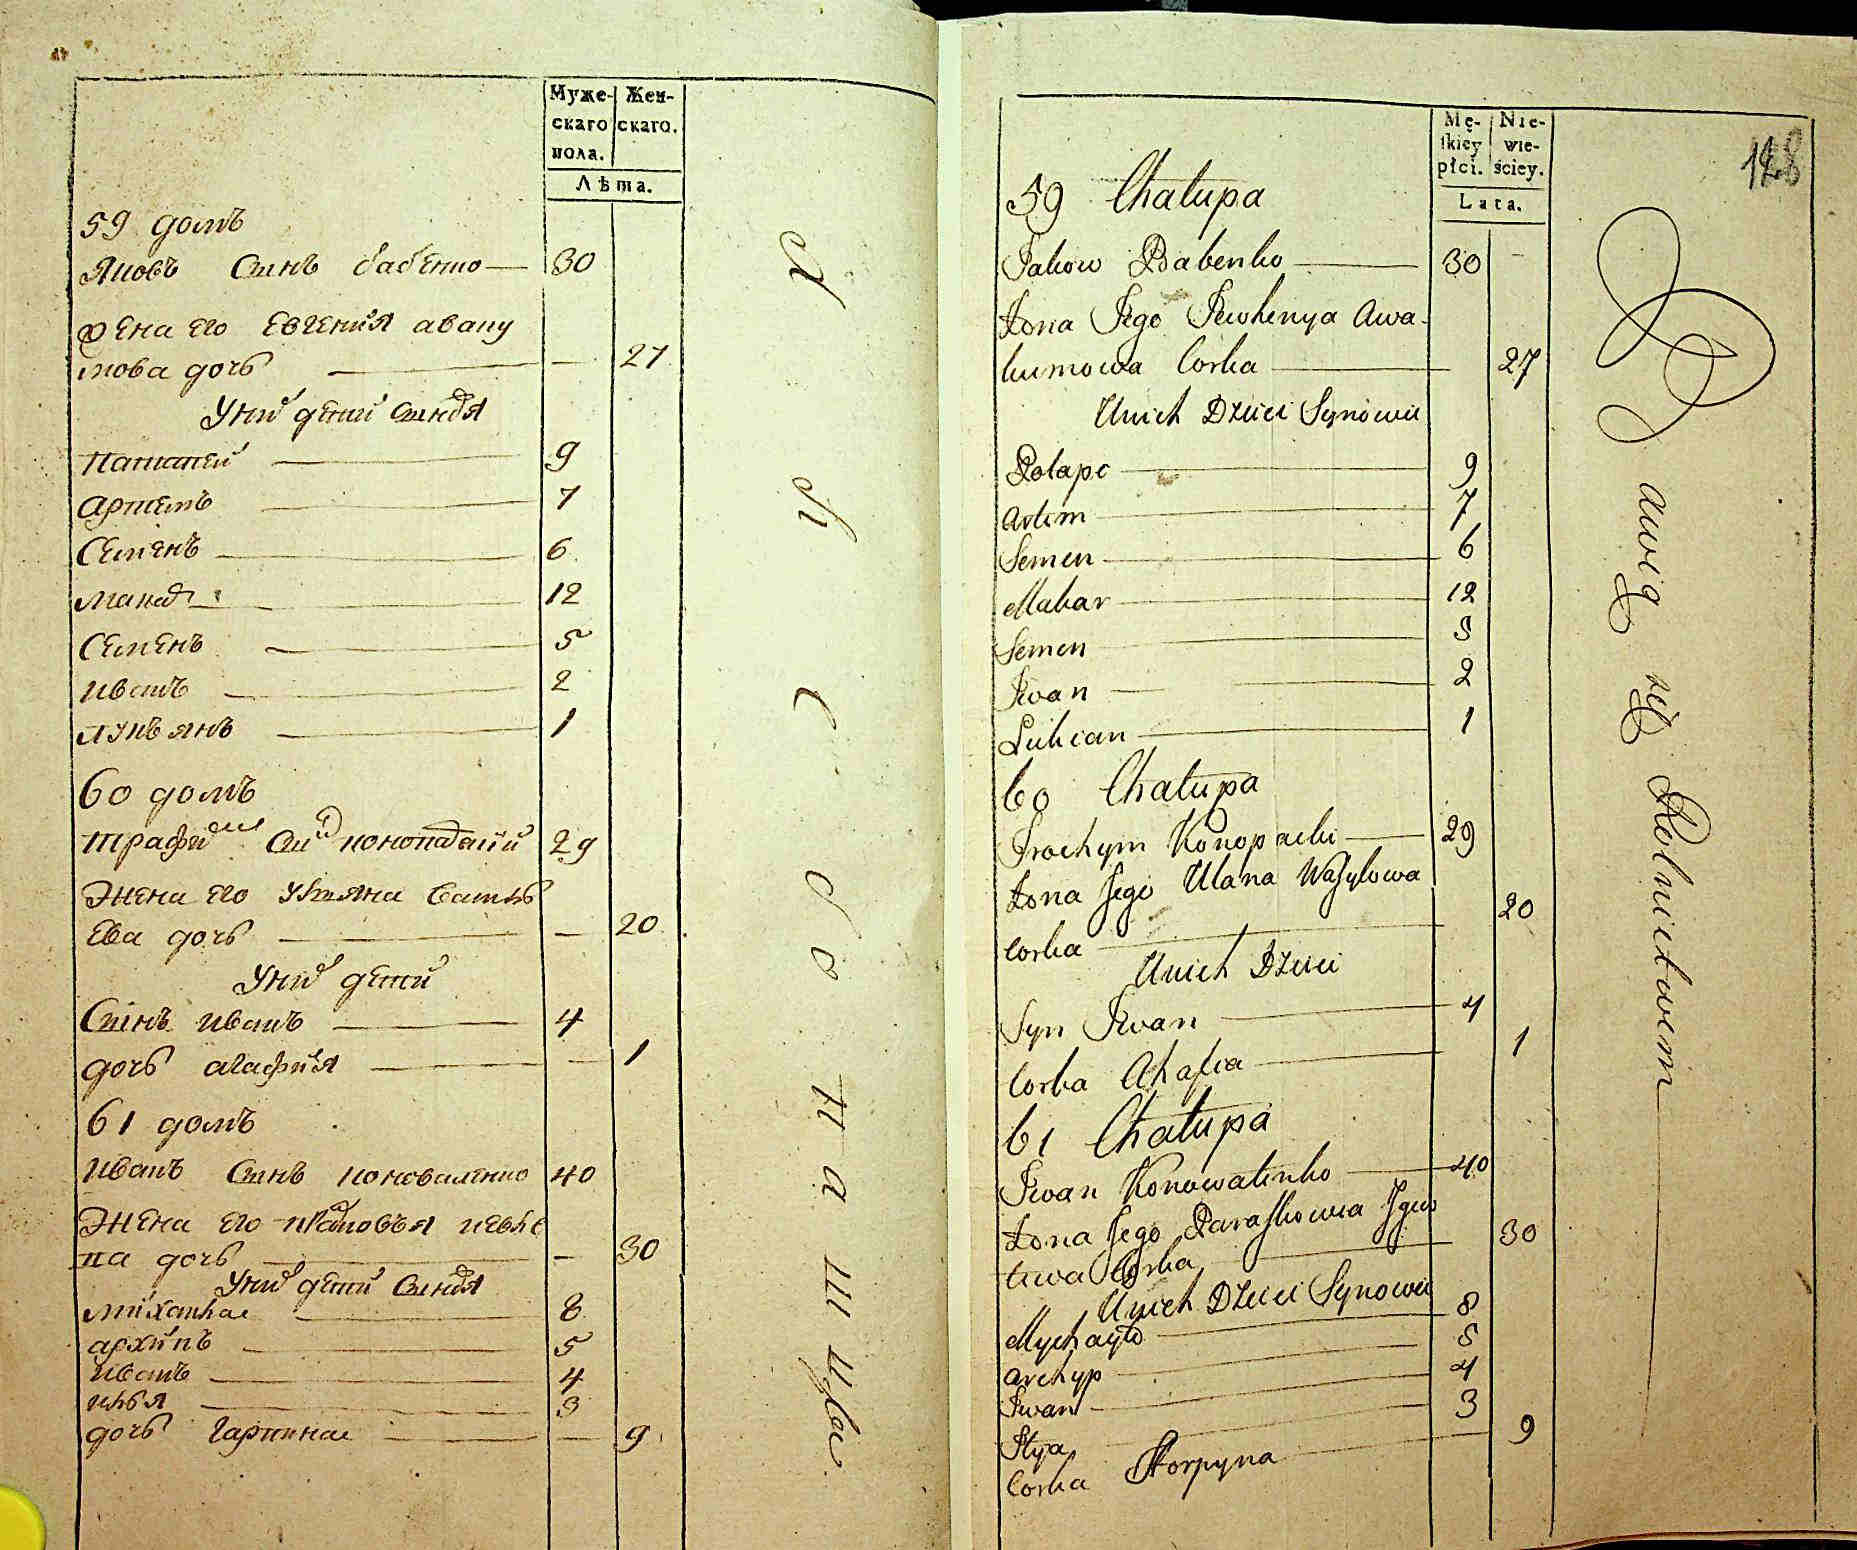 Муже-
скаго
пола.
Жен-
скаго.
Лѣта.
59 домъ
Яковъ Синъ бабенко 30
жена его Евгения авваку
мова дочъ 27
У них дети синовя
Патапей 9
артемъ 7
Семенъ 6
макар 12
Семенъ 5
иванъ 2
лукъянъ 1
60 домъ
трафим Син конопацкий 29
жена его ульяна василь
ева дочъ 20
У них дети
Синъ иванъ 4
дочъ агафия 1
61 домъ
иванъ Синъ коноваленко 40
жена его парасковъя
па дочъ 30
У них дети Синовя
михайла 8
архипъ 5
иванъ 4
илья 3
дочъ гарпина 9
Mę-
skiey
płci.
Nie-
wie-
ściey.
Lata.
128
59 Chałupa
Jakow Babenko 30
żona Jego Jewhenya Awa-
kumowa Corka 27
U nich Dzieci Synowie
Potape 9
Artem 7
Semen 6
Makar 12
Semen 5
Iwan 2
Lukian 1
60 Chałupa
Trochym Konopacki 29
żona Jego Ulana Wasylowa
Corka 20
U nich Dzieci
Syn Iwan 4
Corka Ahafia 1
61 Chałupa
Iwan Konowalenko 40
żona Jego Paraskowia
Corka 30
U nich Dzieci Synowie
Mychayło 8
Archyp 5
Iwan 4
Ilya 3
Corka Horpyna 9
Bawią się Rolnictwem